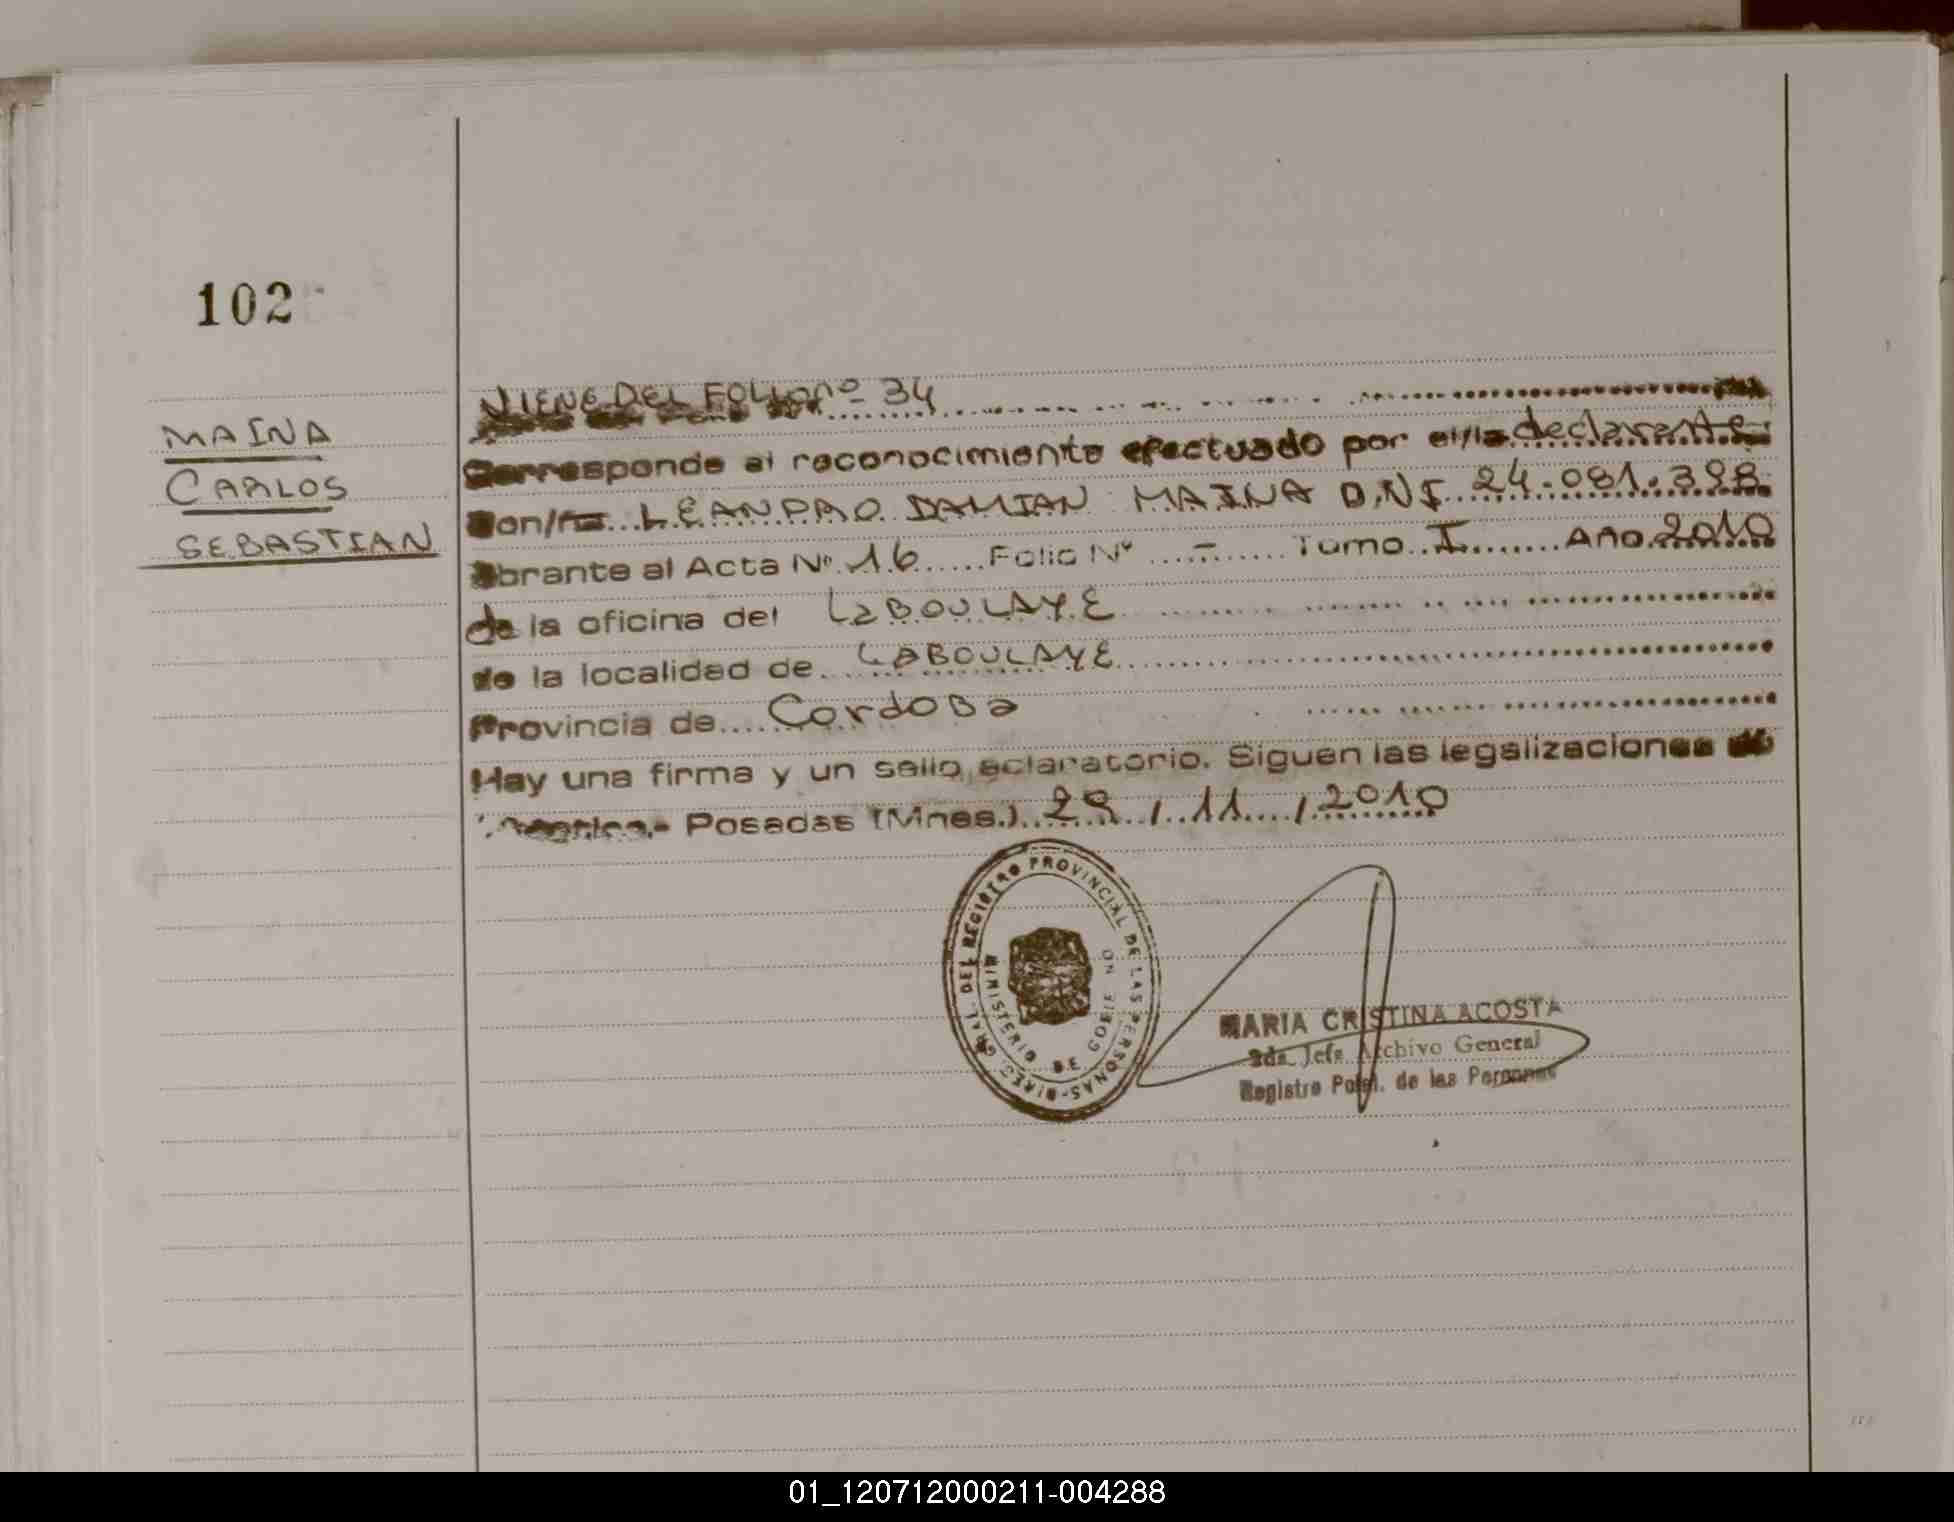 102
MAINA
CARLOS
SEBASTIAN
VIENE DEL FOLIO nº 34
Corresponde al reconocimiento efectuado por el/la declarante
Don/ña LEANDRO DAMIAN MAINA D.N.I. 24.081.398
Obrante al Acta Nº 16 Folio Nº - Tomo I Año 2010
de la oficina del LABOULAYE
de la localidad de LABOULAYE
Provincia de Cordoba
Hay una firma y un sello aclaratorio. Siguen las legalizaciones de
Posadas (Mnes.) 29 / 11 / 2010
DIREC. GRAL. DEL REGISTRO PROVINCIAL DE LAS PERSONAS
MINISTERIO DE GOBIERNO
MARIA CRISTINA ACOSTA
2da. Jefe Archivo General
Registro Pcial. de las Personas
01_120712000211-004288